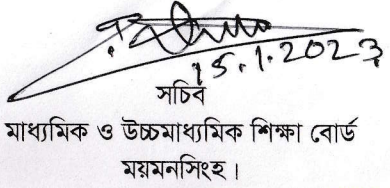 15.1.2023
সচিব
মাধ্যমিক ও উচ্চমাধ্যমিক শিক্ষা বোর্ড
ময়মনসিংহ।